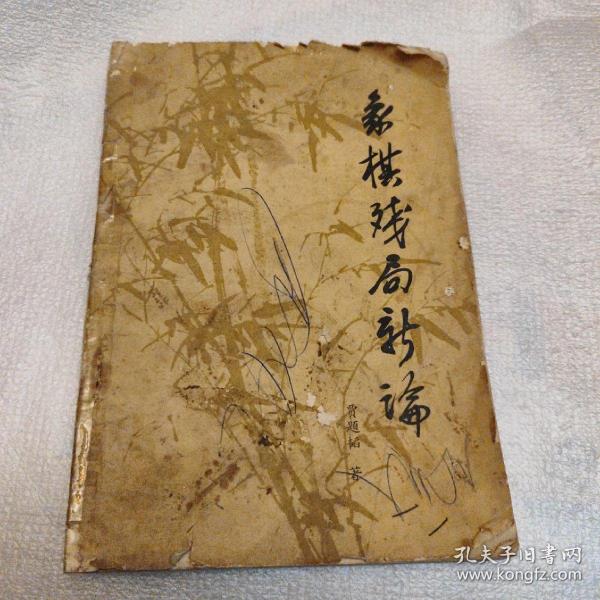 象棋残局新論
賈題韜 著
孔夫子旧书网
www.kongfz.com